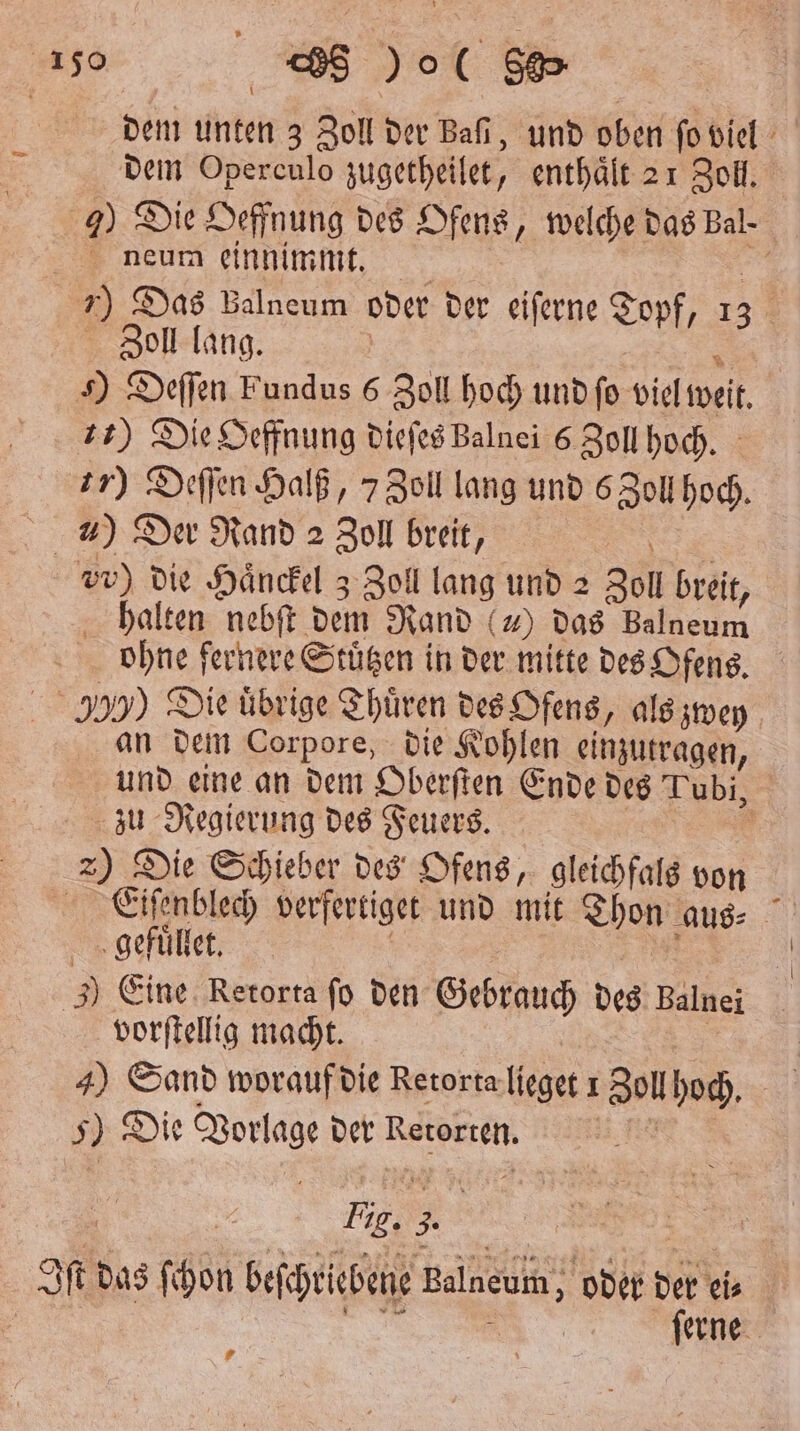 150 ) o (
dem unten 3 Zoll der Baſi, und oben ſo viel
dem Operculo zugetheilet, enthaͤlt 21 Zoll.
q) Die Oeffnung des Ofens, welche das Bal-
neum einnimmt.
r) Das Balneum oder der eiſerne Topf, 13
Zoll lang.
s) Deſſen Fundus 6 Zoll hoch und ſo viel weit.
tt) Die Oeffnung dieſes Balnei 6 Zoll hoch.
tr) Deſſen Halß, 7 Zoll lang und 6 Zoll hoch.
u) Der Rand 2 Zoll breit,
vv) die Haͤnckel 3 Zoll lang und 2 Zoll breit,
halten nebſt dem Rand (u) das Balneum
ohne fernere Stuͤtzen in der mitte des Ofens.
yyy) Die uͤbrige Thuͤren des Ofens, als zwey
an dem Corpore, die Kohlen einzutragen,
und eine an dem Oberſten Ende des Tubi,
zu Regierung des Feuers.
z) Die Schieber des Ofens, gleichfals von
Eiſenblech verfertiget und mit Thon aus-
gefuͤllet.
3) Eine Retorta ſo den Gebrauch des Balnei
vorſtellig macht.
4) Sand worauf die Retorta lieget 1 Zoll hoch.
5) Die Vorlage der Retorten.
Fig. 3.
Iſt das ſchon beſchriebene Balneum, oder der ei-
ſerne